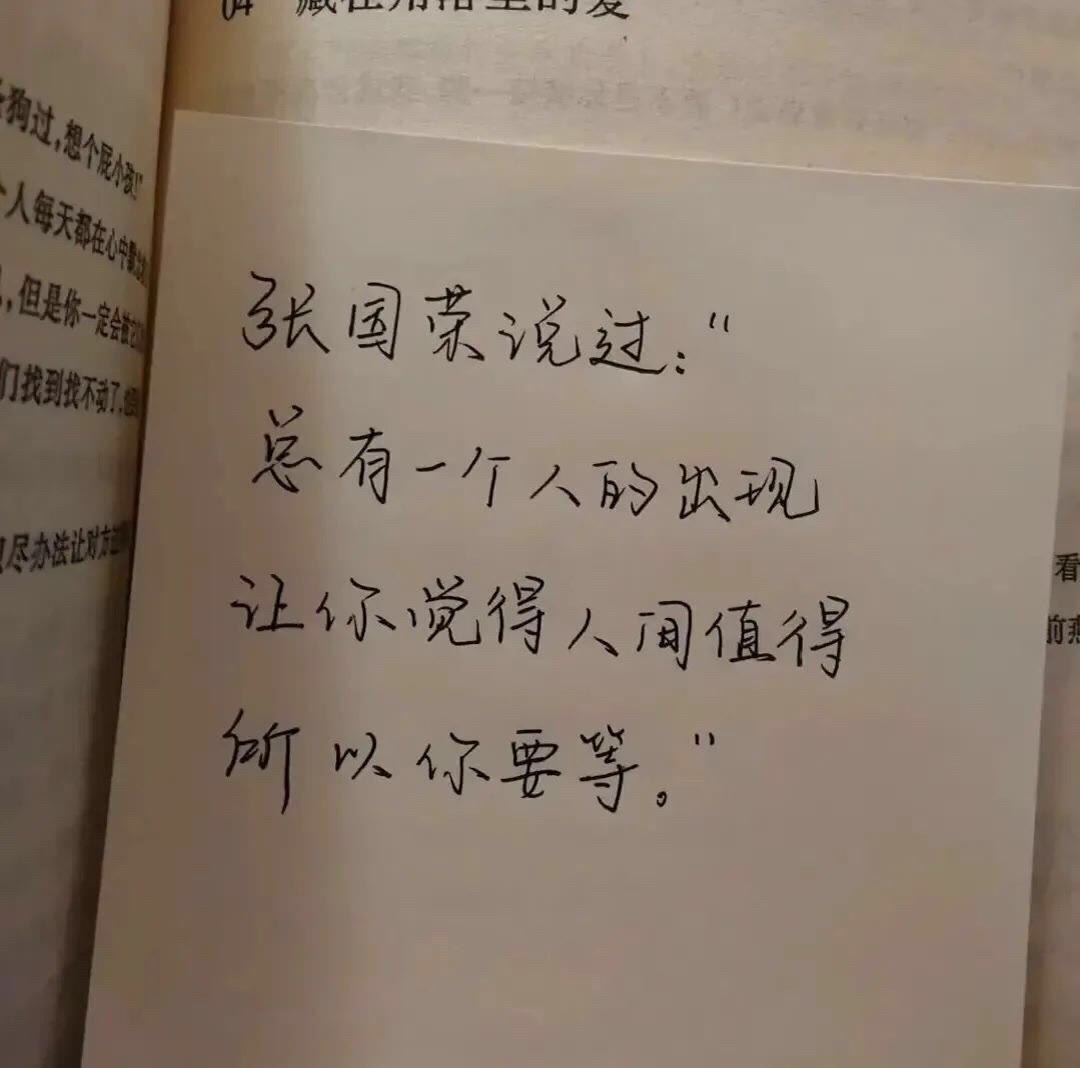 04 藏在角落里的爱
狗过，想个屁小孩！”
个人每天都在心中默
，但是你一定会被它
们找到找不动了，
尽办法让对方
张国荣说过：“
总有一个人的出现
让你觉得人间值得
所以你要等。”
看
前燕